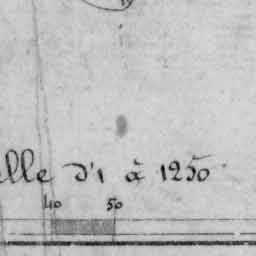 elle d'1 à 1250
40 50